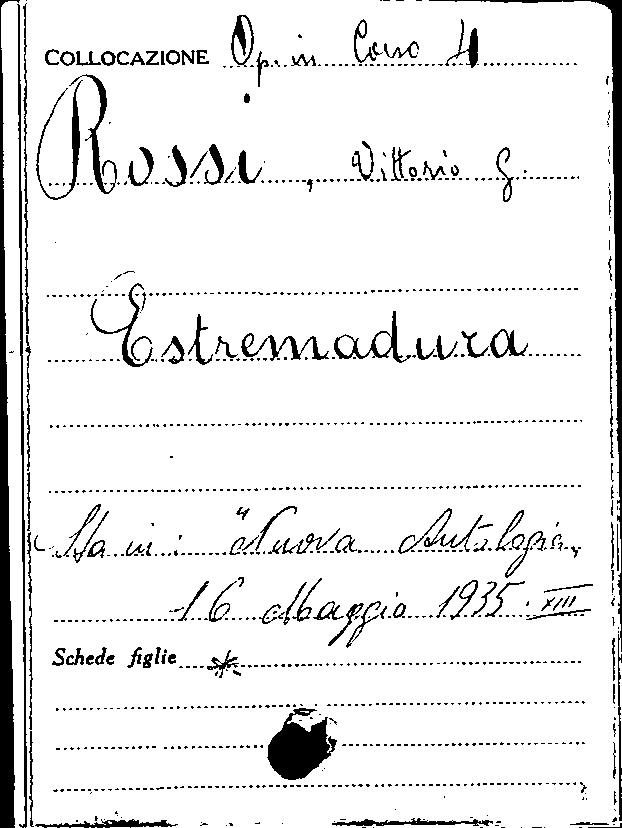 COLLOCAZIONE Op. in Corso 4
Rossi, Vittorio G.
Estremadura
Sta in: "Nuova Antologia„
16 Maggio 1935. XIII
Schede figlie *